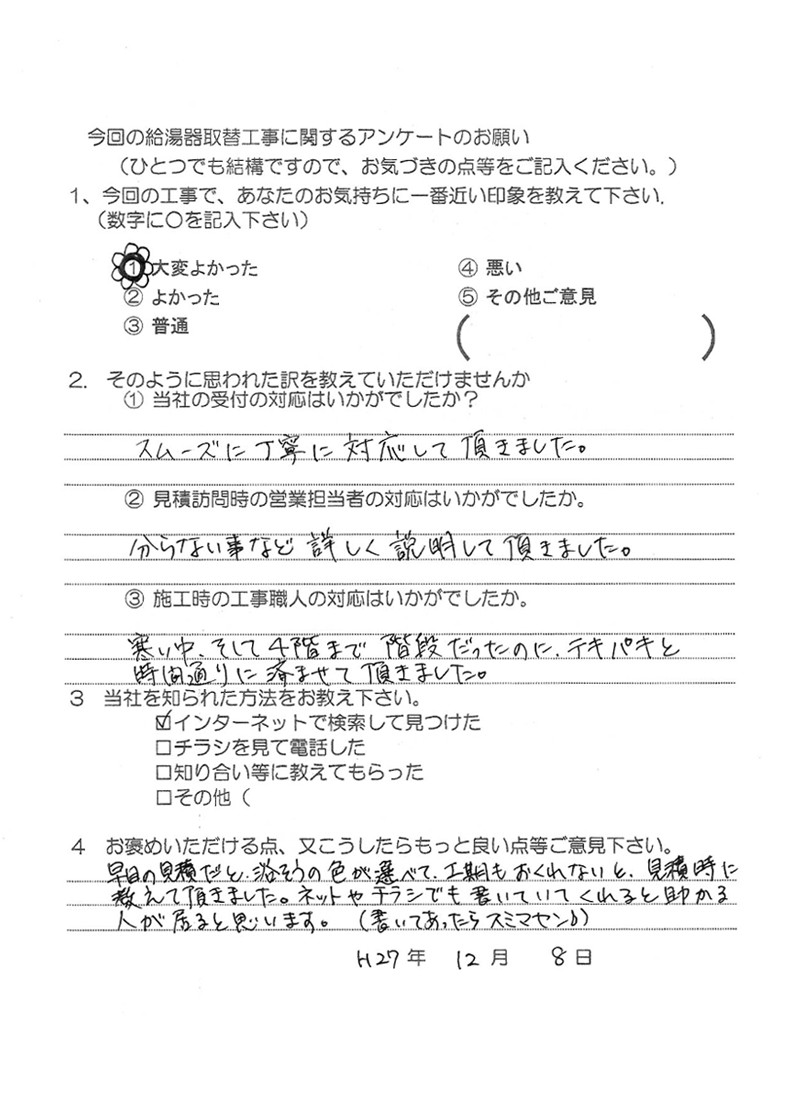 今回の給湯器取替工事に関するアンケートのお願い
（ひとつでも結構ですので、お気づきの点等をご記入ください。）
１、今回の工事で、あなたのお気持ちに一番近い印象を教えて下さい.
（数字に〇を記入下さい）
① 大変よかった
② よかった
③ 普通
④ 悪い
⑤ その他ご意見
（　　）
２. そのように思われた訳を教えていただけませんか
① 当社の受付の対応はいかがでしたか？
スムーズに丁寧に対応して頂きました。
② 見積訪問時の営業担当者の対応はいかがでしたか。
分らない事など詳しく説明して頂きました。
③ 施工時の工事職人の対応はいかがでしたか。
寒い中、そして4階まで階段だったのに、テキパキと
時間通りに済ませて頂きました。
３ 当社を知られた方法をお教え下さい。
☑インターネットで検索して見つけた
□チラシを見て電話した
□知り合い等に教えてもらった
□その他（
４ お褒めいただける点、又こうしたらもっと良い点等ご意見下さい。
早目の見積だと、浴そうの色が選べて、工期もおくれないと、見積時に
教えて頂きました。ネットやチラシでも書いていてくれると助かる
人が居ると思います。（書いてあったらスミマセン♪）
H27年 12月 8日